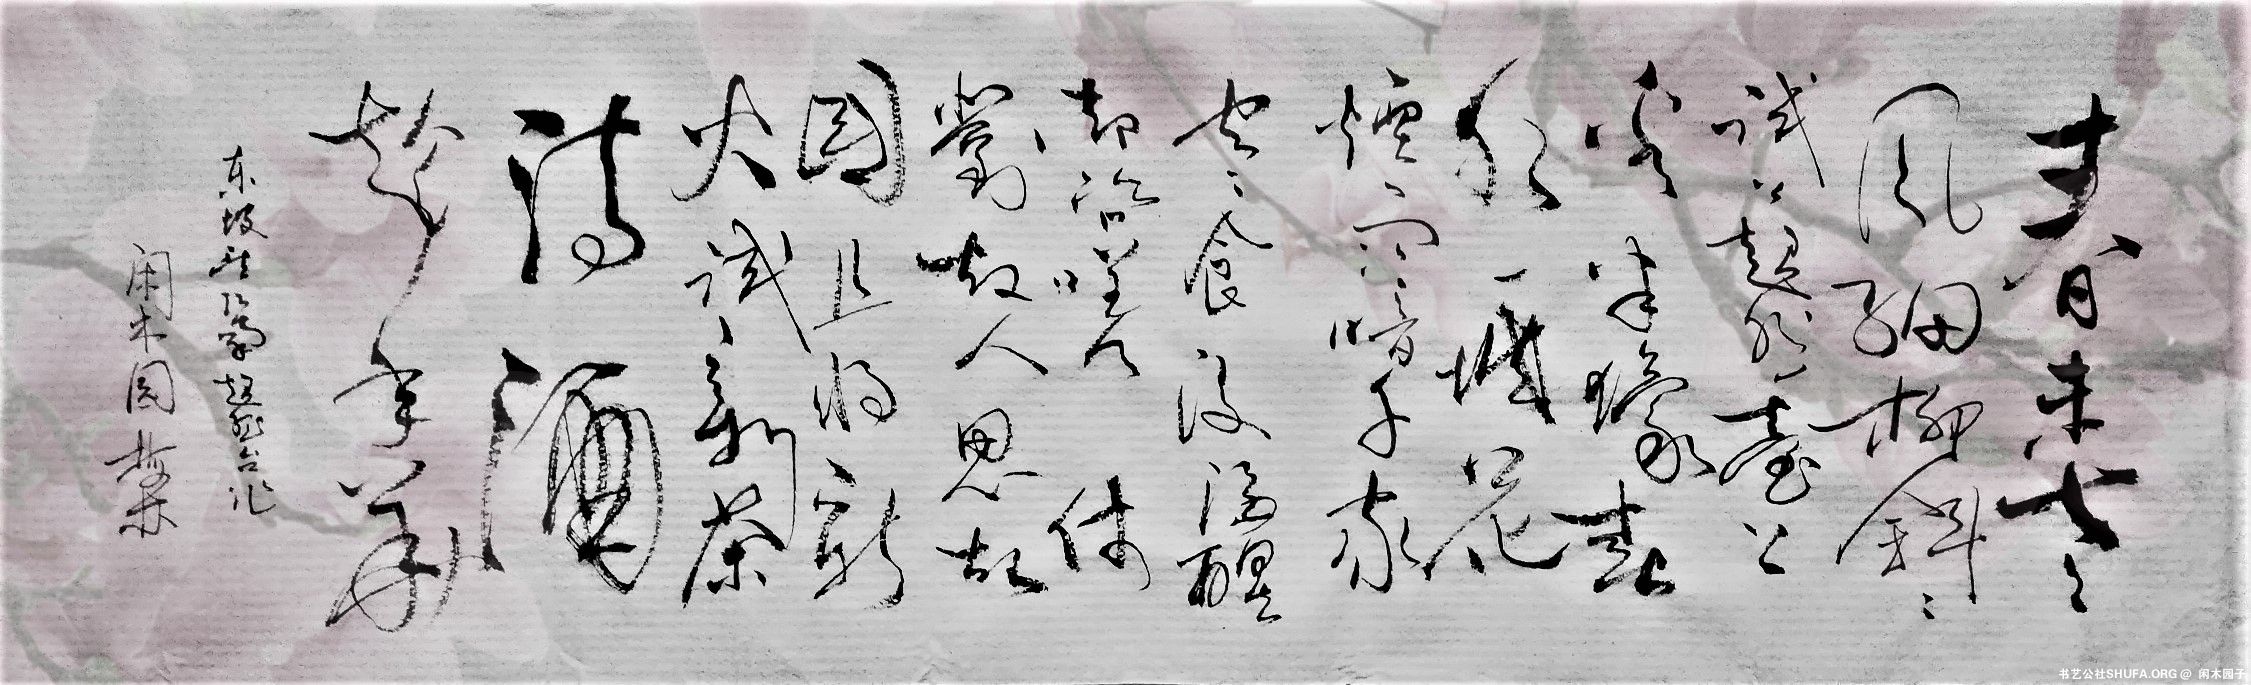 春未老
風細柳斜斜
试上超然臺上
看半壕春
水一城花
煙雨暗千家
寒食後酒醒
却咨嗟休
對故人思故
國且将新
火试新茶
诗酒
趁年華
东坡望江南超然台作
闲木园
书艺公社SHUFA.ORG @ 闲木园子